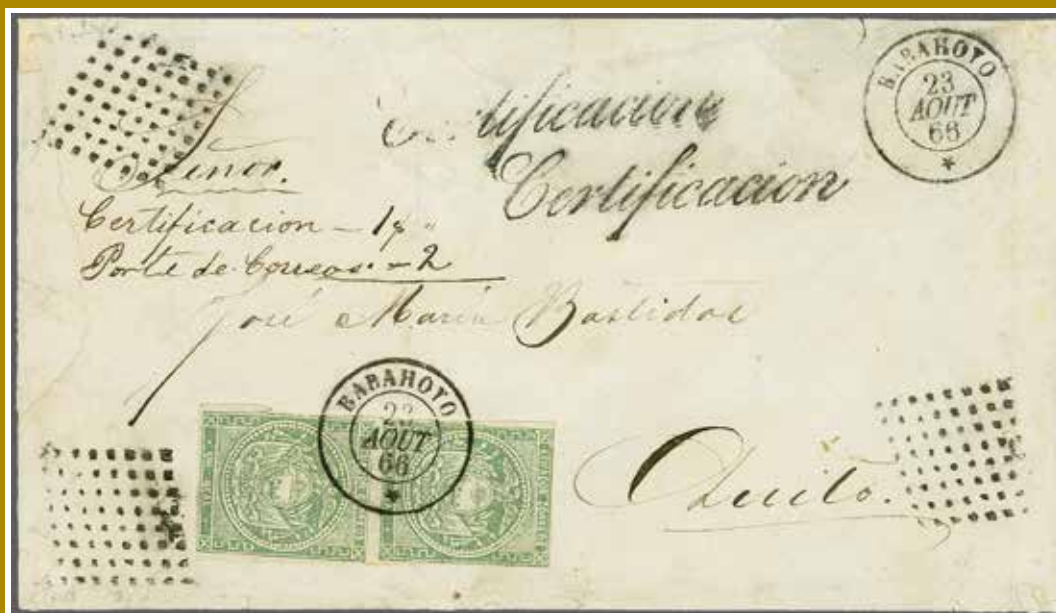 BABAHOYO
23
AOUT
66
Certificacion
Certificacion
Señor.
Certificacion - 1
Porte de Correos. - 2
José Maria Bastidas
BABAHOYO
23
AOUT
66
Quito.